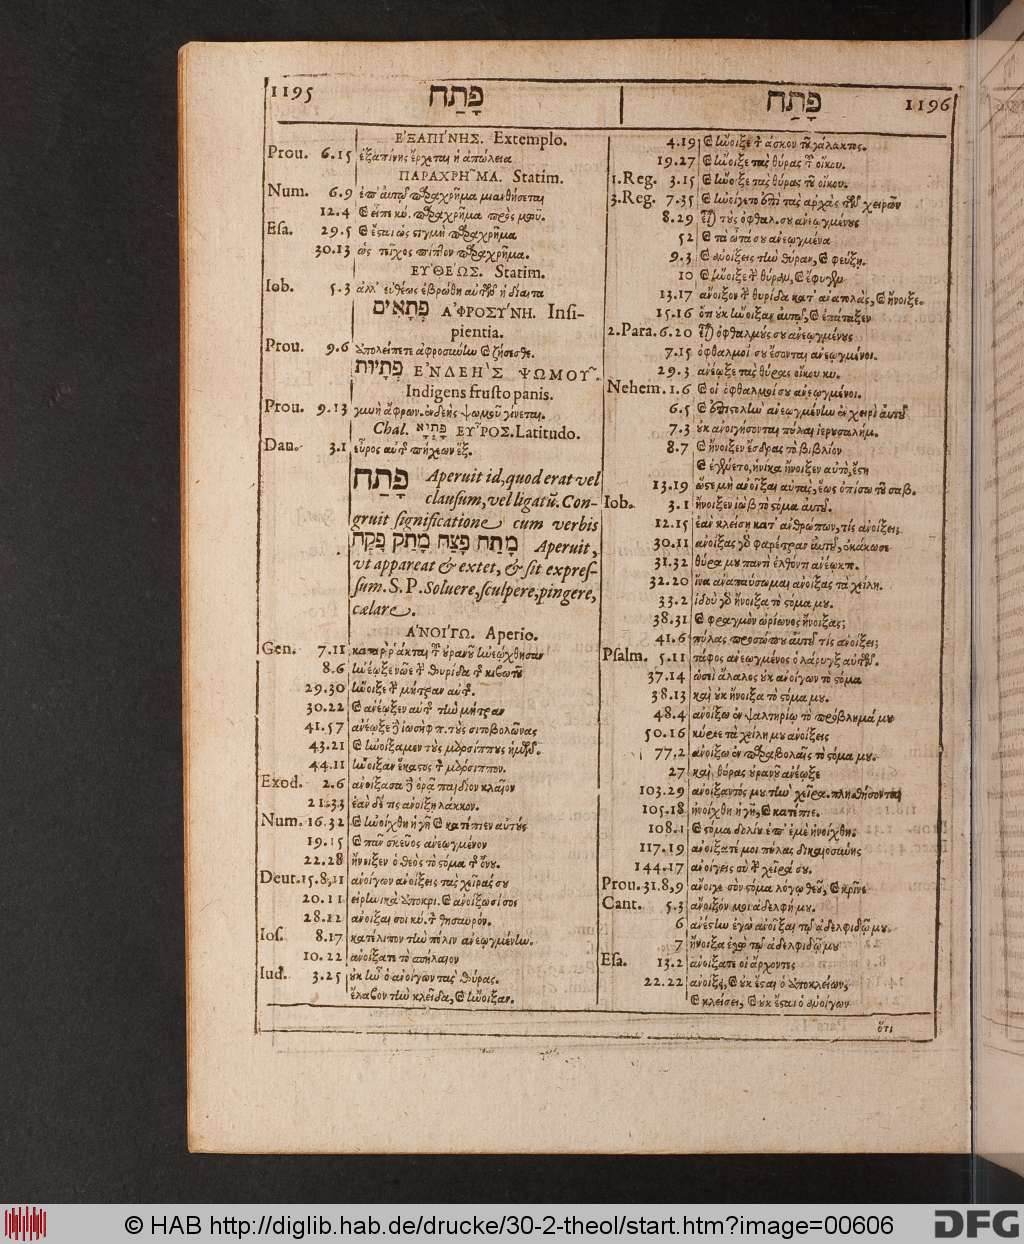 1195 פָּתַח
ἘΞΑΠΊΝΗΣ. Extemplo.
Prou. 6.15 ἐξαπίνης ἔρχεται ἡ ἀπώλεια
ΠΑΡΑΧΡΗ͂ΜΑ. Statim.
Num. 6.9 ἐπ' αὐτῷ παραχρῆμα μιανθήσεται
12.4 καὶ εἶπε κύ. παραχρῆμα πρὸς μωυ.
Esa. 29.5 καὶ ἔσται ὡς στιγμὴ παραχρῆμα
30.13 ὡς τεῖχος πίπτον παραχρῆμα.
ΕΥ̓ΘΈΩΣ. Statim.
Iob. 5.3 ἀλλ' εὐθέως ἐβρώθη αὐτῶν ἡ δίαιτα
פְּתָאיִם ἈΦΡΟΣΎΝΗ. Insi-
pientia.
Prou. 9.6 ὑπολείπετε ἀφροσύνην καὶ ζήσεσθε.
פְּתָיוּת ἘΝΔΕΗῚΣ ΨΩΜΟΥ͂.
Indigens frusto panis.
Prou. 9.13 γυνὴ ἄφρων. ἐνδεὴς ψωμοῦ γίνεται.
Chal. פְּתָיָא ΕΥ͂̓ΡΟΣ. Latitudo.
Dan. 3.1 εὖρος αὐτοῦ πήχεων ἕξ.
פָּתַח Aperuit id, quod erat vel
clausum, vel ligatũ. Con-
gruit significatione cum verbis
מָתַח פָּצַח מָתַק פָּקַח Aperuit,
vt appareat & extet, & sit expres-
sum. S. P. Soluere, sculpere, pingere,
cælare.
ἈΝΟΊΓΩ. Aperio.
Gen. 7.11 καταρράκται τοῦ οὐρανοῦ ἠνεῴχθησαν
8.6 ἠνέῳξε νῶε τὴν θυρίδα τῆς κιβωτοῦ
29.30 ἤνοιξε τὴν μήτραν αὐτῆς.
30.22 καὶ ἀνέῳξεν αὐτῆς τὴν μήτραν
41.57 ἀνέῳξε δὲ ἰωσὴφ π. τοὺς σιτοβολῶνας
43.21 καὶ ἠνοίξαμεν τοὺς μαρσίππους ἡμῶν.
44.11 ἤνοιξαν ἕκαστος τὸν μάρσιππον.
Exod. 2.6 ἀνοίξασα δὲ ὁρᾷ παιδίον κλαῖον
21.33 ἐὰν δέ τις ἀνοίξῃ λάκκον.
Num. 16.32 καὶ ἠνοίχθη ἡ γῆ καὶ κατέπιεν αὐτούς
19.15 καὶ πᾶν σκεῦος ἀνεῳγμένον
22.28 ἤνοιξεν ὁ θεὸς τὸ στόμα τῆς ὄνου.
Deut. 15.8,11 ἀνοίγων ἀνοίξεις τὰς χεῖράς σου
20.11 εἰρηνικὰ ἀποκρι. καὶ ἀνοίξωσί σοι
28.12 ἀνοίξαι σοι κύ. τὸν θησαυρόν.
Ios. 8.17 κατέλιπον τὴν πόλιν ἀνεῳγμένην.
10.22 ἀνοίξατε τὸ σπήλαιον
Iud. 3.25 οὐκ ἦν ὁ ἀνοίγων τὰς θύρας.
ἔλαβον τὴν κλεῖδα, καὶ ἤνοιξαν.
פָּתַח 1196
4.19 καὶ ἤνοιξε τὸν ἀσκὸν τοῦ γάλακτος.
19.27 καὶ ἤνοιξε τὰς θύρας τοῦ οἴκου.
1.Reg. 3.15 καὶ ἤνοιξε τὰς θύρας τοῦ οἴκου.
3.Reg. 7.35 καὶ ἠνοίγετο ἐπὶ τὰς ἀρχὰς τῶν χειρῶν
8.29 εἶναι τοὺς ὀφθαλ. σου ἀνεῳγμένους
52 καὶ τὰ ὦτά σου ἀνεῳγμένα
9.3 καὶ ἀνοίξεις τὴν θύραν, καὶ φεύξῃ.
10 καὶ ἤνοιξε τὴν θύραν, καὶ ἔφυγεν
13.17 ἄνοιξον τὴν θυρίδα κατ' ἀνατολὰς, καὶ ἤνοιξε.
15.16 ὅτι οὐκ ἤνοιξαν αὐτῷ, καὶ ἐπάταξεν
2.Para. 6.20 εἶναι ὀφθαλμούς σου ἀνεῳγμένους
7.15 ὀφθαλμοί σου ἔσονται ἀνεῳγμένοι.
29.3 ἀνέῳξε τὰς θύρας οἴκου κυ.
Nehem. 1.6 καὶ οἱ ὀφθαλμοί σου ἀνεῳγμένοι.
6.5 καὶ ἐπιστολὴν ἀνεῳγμένην ἐν χειρὶ αὐτοῦ
7.3 οὐκ ἀνοιγήσονται πύλαι ἱερουσαλήμ.
8.7 καὶ ἤνοιξεν ἔσδρας τὸ βιβλίον
καὶ ἐγένετο, ἡνίκα ἤνοιξεν αὐτὸ, ἔστη
13.19 ὥστε μὴ ἀνοῖξαι αὐτὰς, ἕως ὀπίσω τοῦ σαβ.
Iob. 3.1 ἤνοιξεν ἰὼβ τὸ στόμα αὐτοῦ.
12.15 ἐὰν κλείσῃ κατ' ἀνθρώπων, τίς ἀνοίξει;
30.11 ἀνοίξας γὰρ φαρέτραν αὐτοῦ, ἐκάκωσε
31.32 θύρα μου παντὶ ἐλθόντι ἀνέῳκτ.
32.20 ἵνα ἀναπαύσωμαι ἀνοίξας τὰ χείλη.
33.2 ἰδοὺ γὰρ ἤνοιξα τὸ στόμα μου.
38.31 καὶ φραγμὸν ὠρίωνος ἤνοιξας;
41.6 πύλας προσώπου αὐτοῦ τίς ἀνοίξει;
Psalm. 5.11 τάφος ἀνεῳγμένος ὁ λάρυγξ αὐτῶν.
37.14 ὡσεὶ ἄλαλος οὐκ ἀνοίγων τὸ στόμα
38.13 καὶ οὐκ ἤνοιξα τὸ στόμα μου.
48.4 ἀνοίξω ἐν ψαλτηρίῳ τὸ πρόβλημά μου
50.16 κύριε τὰ χείλη μου ἀνοίξεις
77.2 ἀνοίξω ἐν παραβολαῖς τὸ στόμα μου.
27 καὶ θύρας οὐρανοῦ ἀνέῳξε
103.29 ἀνοίξαντός σου τὴν χεῖρα. πλησθήσονται
105.18 ἠνοίχθη ἡ γῆ, καὶ κατέπιε.
108.1 καὶ στόμα δολίου ἐπ' ἐμὲ ἠνοίχθη.
117.19 ἀνοίξατέ μοι πύλας δικαιοσύνης
144.17 ἀνοίγεις σὺ τὴν χεῖρά σου.
Prou. 31.8,9 ἄνοιγε σὸν στόμα λόγῳ θεοῦ, καὶ κρῖνε
Cant. 5.3 ἄνοιξόν μοι ἀδελφή μου.
6 ἀνέστην ἐγὼ ἀνοῖξαι τῷ ἀδελφιδῷ μου.
7 ἤνοιξα ἐγὼ τῷ ἀδελφιδῷ μου
Esa. 13.2 ἀνοίξατε οἱ ἄρχοντες
22.22 ἀνοίξει, καὶ οὐκ ἔσται ὁ ἀποκλείων,
καὶ κλείσει, καὶ οὐκ ἔσται ὁ ἀνοίγων
ὅτι
© HAB http://diglib.hab.de/drucke/30-2-theol/start.htm?image=00606
DFG